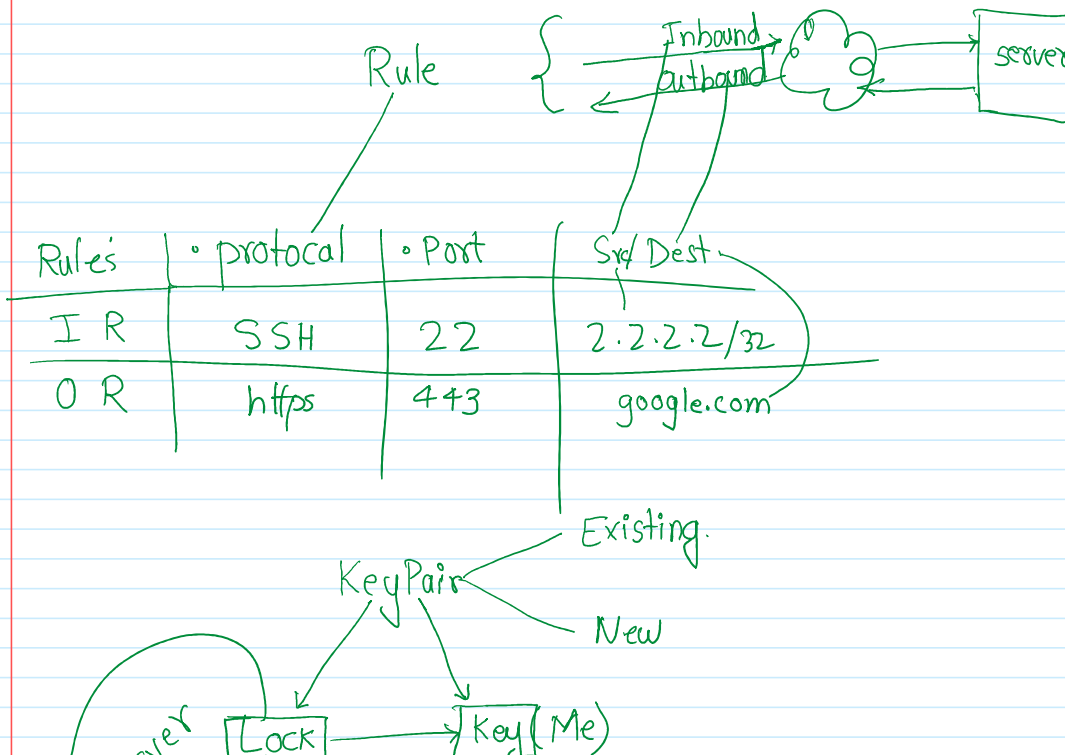 Inbound
Rule
outbound
server
Rules
• protocal
• Port
Src/Dest
I R
SSH
22
2.2.2.2/32
O R
https
443
google.com
Existing.
KeyPair
New
Lock
Key (Me)